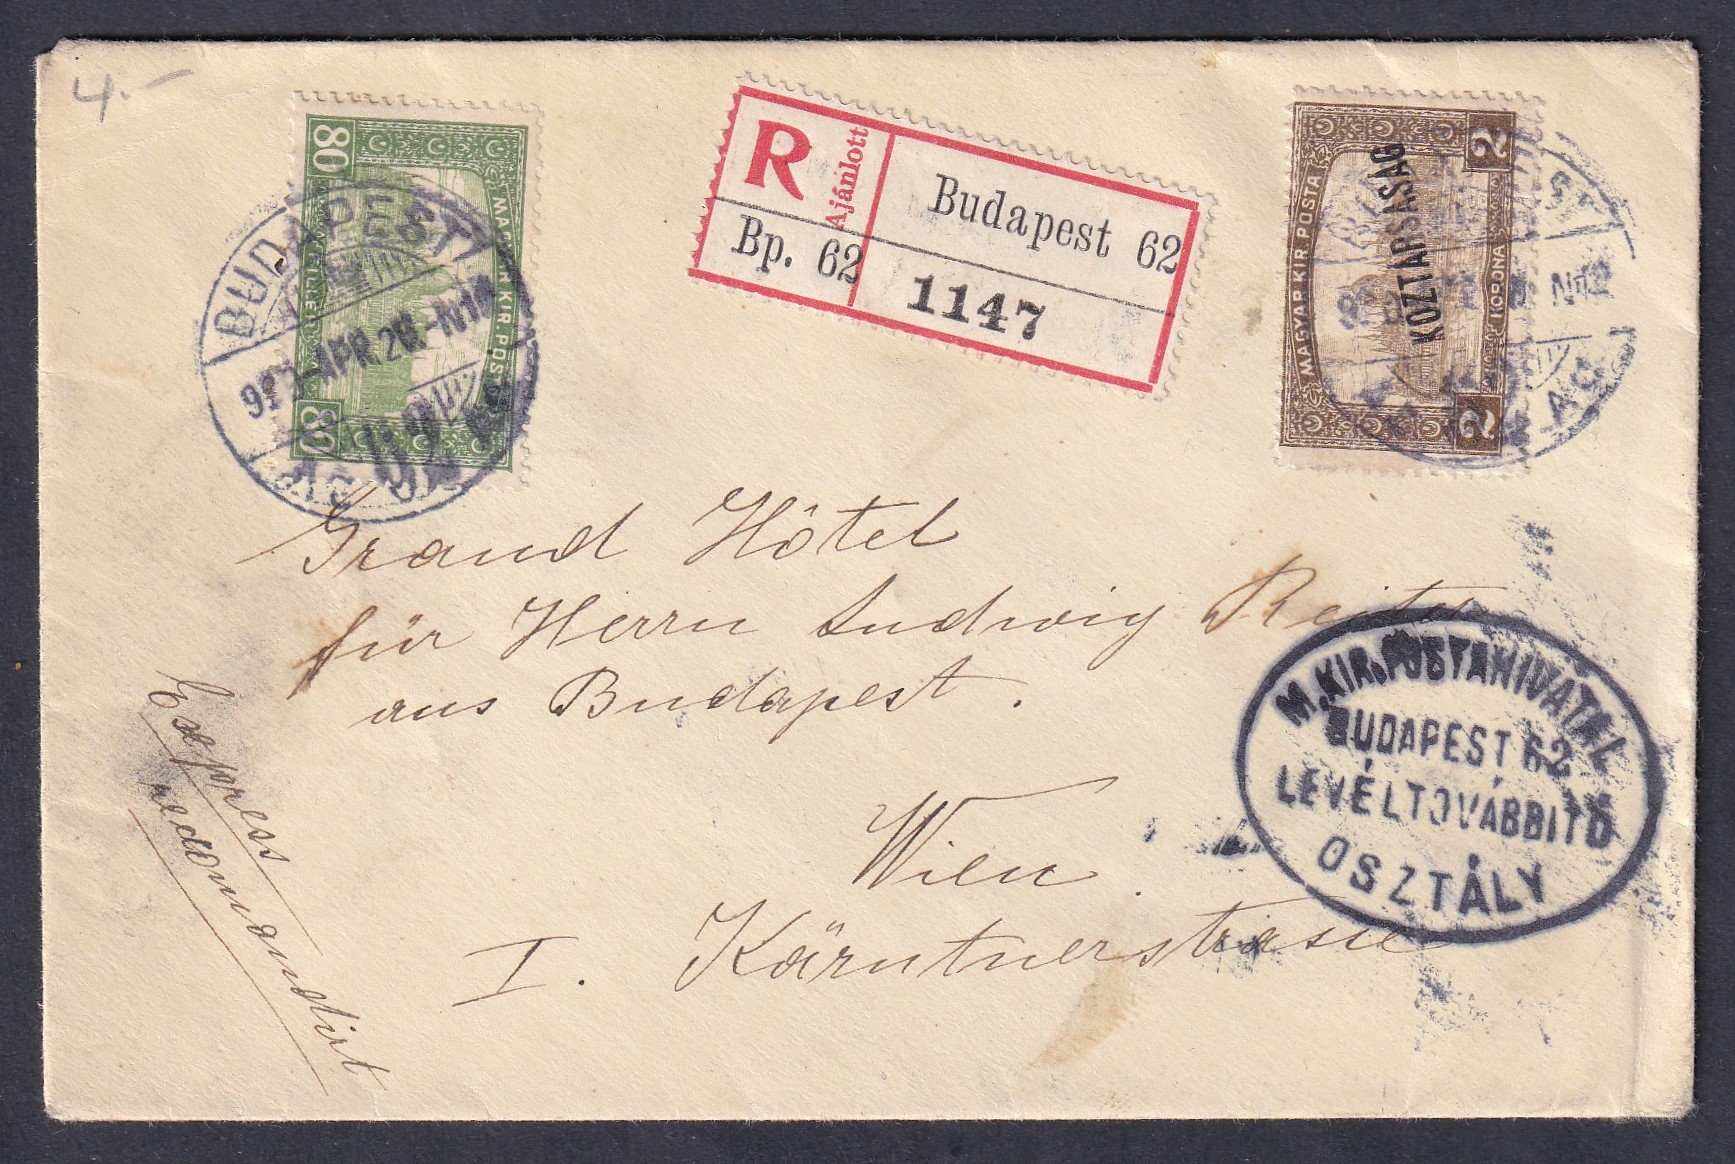 4.-
80
80
MAGYAR KIR. POSTA
BUDAPEST
APR. 20
R
Ajánlott
Budapest 62
Bp. 62
1147
2
2
MAGYAR KIR. POSTA
KORONA
KÖZTÁRSASÁG
Grand Hôtel
für Herrn Ludwig Reiter
aus Budapest.
Wien
I. Kärntnerstrasse
Express
recomandirt
M. KIR. POSTAHIVATAL
BUDAPEST 62
LEVÉLTOVÁBBITÓ
OSZTÁLY